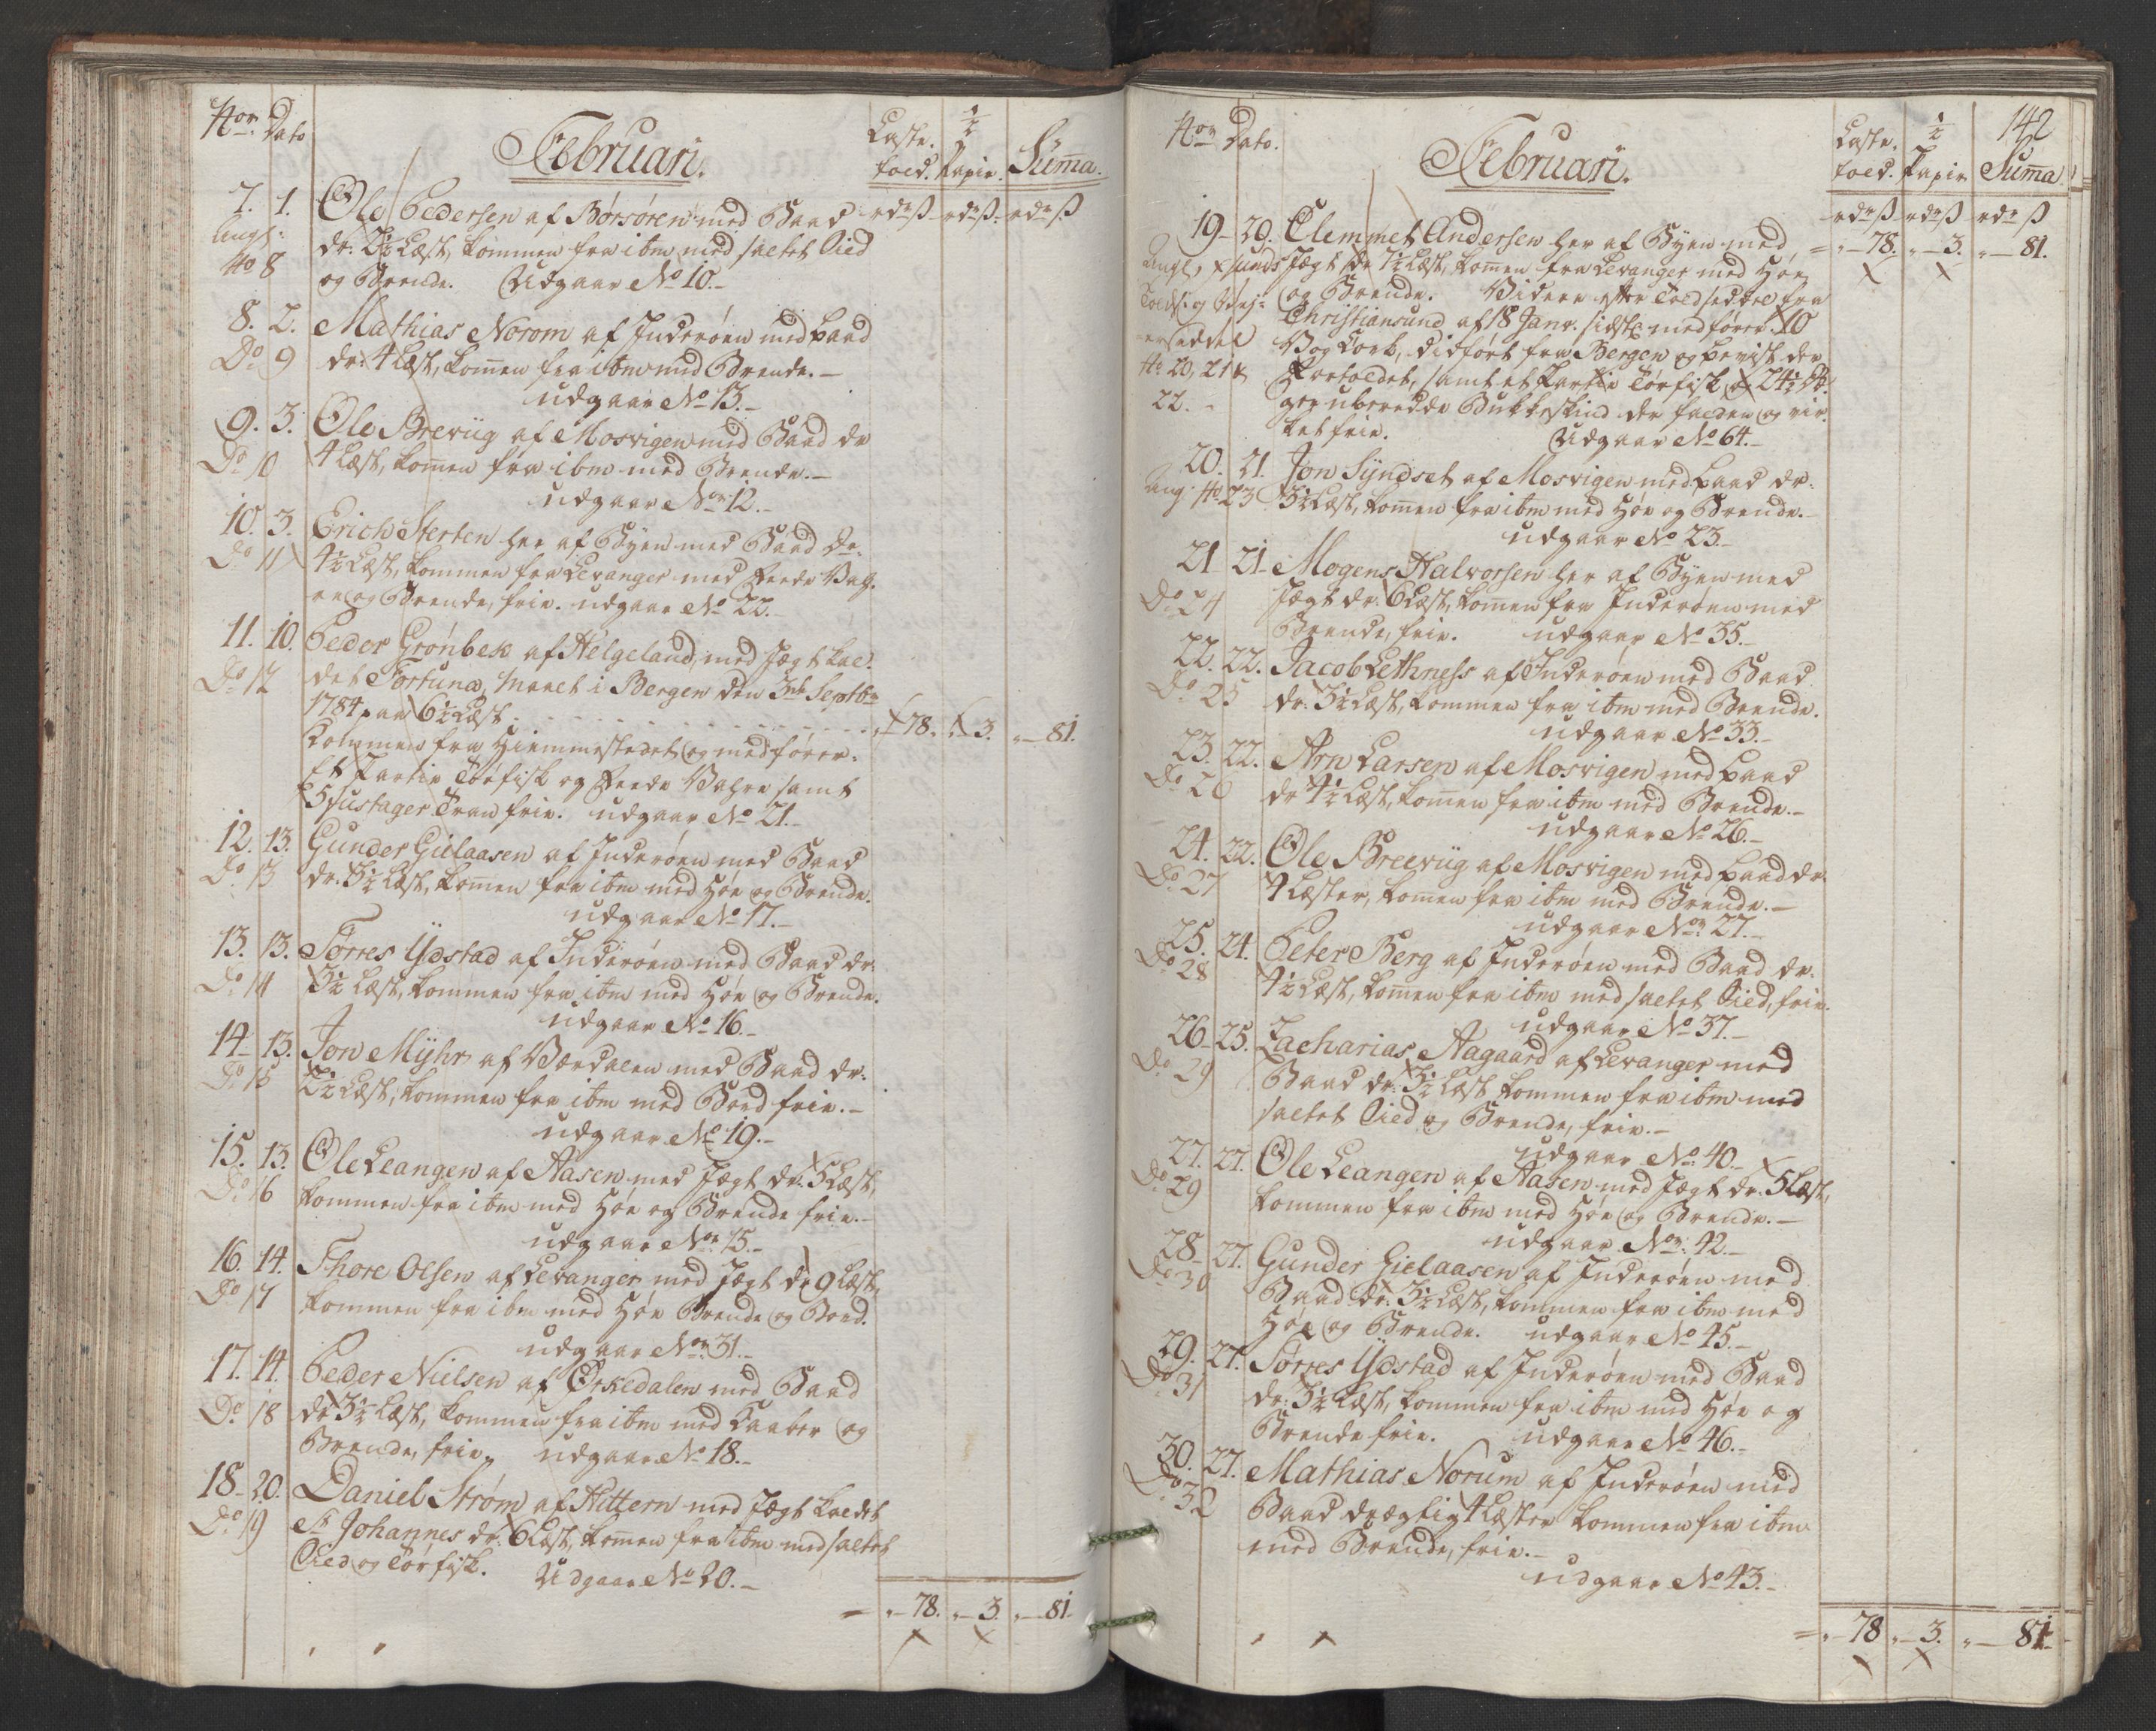 Nor. Dato
Februari.
Læste. told. ½ Papir. Summa.
rdr ß rdr ß rdr ß
7. 1. Ole Pedersen af Börsören med Baad
Angl: No 8 dr: 2½ Læst, kommen fra ibm med saltet Sild
og Brende. Udgaar No 10.-
8. 2. Mathias Norom af Inderöen med baad
Do 9 dr: 4 Læst, kommen fra ibm med Brende.-
udgaar No 13.-
9. 3. Ole Breviig af Mosvigen med Baad dr
Do 10 4 Læst, kommen fra ibm med Brende.-
udgaar Nor 12.-
10. 3. Erich Sterten her af Byen med Baad dr.
Do 11 4½ Læst, kommen fra Levanger med Feede Vah-
re og Brende, frie. udgaar No 22.-
11. 10. Peder Grönbek af Helgeland, med Jægt kal-
Do 12 det Fortuna, maalt i Bergen den 3de Septbr
1784 paa 6½ Læst . . . 78. 3. 81.
kommen fra Hiemmestedet og medfører.
Et Partie Törfisk og Feede Vahre samt
5 fustager Tran frie. udgaar No 21.-
12. 13. Gunder Gielaasen af Inderöen med Baad
Do 13 dr. 3½ Læst, kommen fra ibm med Höe og Brende.
udgaar No 17.-
13. 13. Törres Ydstad af Inderöen med Baad dr:
Do 14 3½ Læst, kommen fra ibm med Höe og Brende.
udgaar No 16.-
14. 13. Jon Myhr af Værdalen med Baad dr:
Do 15 2½ Læst, kommen fra ibm med Bord frie.-
udgaar No 19.-
15. 13. Ole Leangen af Aasen med Jægt dr: 5 Læst,
Do 16 kommen fra ibm med Höe og Brende frie.-
udgaar Nor 15.-
16. 14. Thore Olsen af Levanger med Jægt dr 9 Læst,
Do 17 kommen fra ibm med Höe Brende og Bord.
udgaar Nor 31.-
17. 14. Peder Nielsen af Örkedalen med Baad
Do 18 dr 3½ Læst, kommen fra ibm med Kaaber og
Brende, frie, udgaar No 18.-
18. 20. Daniel Ström af Hittern med Jægt kaldet
Do 19 St Johannes dr: 6 Læst, kommen fra ibm med saltet
Sild og Törfisk. Udgaar No 20.-
= 78. 3. 81.
142
Nor Dato.
Februari.
Læste. told. ½ Papir Summa
rdr ß rdr ß rdr ß
19. 20. Clemmet Andersen her af Byen med = 78. 3. 81.
Jægt dr 7½ Læst, kommen fra Levanger med Höe
og Brende. Videre efter Toldseddel fra
Christiansund af 18 Janr. sidstl. medfører 10
No 20, 21 & Vog Kork, didfört fra Bergen og bevist der
22. fortoldet, samt et Partie Törfisk og 24½ Dk.
uberedde Bukkeskind der falden og vir-
ket frie. Udgaar No 64.-
20. 21. Jon Syndset af Mosvigen med baad dr:
Ang. No 23 3½ Læst, kommen fra ibm med Höe og Brende.-
udgaar No 23.-
21 21. Mogens Halvorsen her af Byen med
Do 24 Jægt dr. 6 Læst, kommen fra Inderöen med
Brende, frie. udgaar No 35.-
22. 22. Jacob Lethness af Inderöen med Baad
Do 25 dr: 3½ Læst, kommen fra ibm med Brende.
udgaar No 33.-
23. 22. Arn Larsen af Mosvigen med baad
Do 26 dr 4½ Læst, kommen fra ibm med Brende.-
udgaar No 26.-
24. 22. Ole Breeviig af Mosvigen med baad dr.
Do 27 4 Læster, kommen fra ibm med Brende.-
udgaar Nor 27.-
25. 24. Peter Berg af Inderöen med Baad dr.
Do 28 4½ Læst, kommen fra ibm med saltet Sild, frie.
udgaar No 37.-
26. 25. Zacharias Aagaard af Levanger med
Do 29 Baad dr: 3½ Læst kommen fra ibm med
saltet Sild og Brende, frie.-
udgaar No 40.-
27. 27. Ole Leangen af Aasen med Jægt dr. 5 Læst,
Do 29 kommen fra ibm med Höe og Brende.-
udgaar Nor. 42.-
28. 27. Gunder Gielaasen af Inderöen med
Do 30 Baad dr: 3½ Læst, kommen fra ibm med
Höe og Brende. udgaar No 45.-
29. 27. Törres Ydstad af Inderöen med Baad
Do 31 dr: 3½ Læst, kommen fra ibm med Höe og
Brende frie. udgaar No 46.-
30. 27. Mathias Norum af Inderöen med
Do 32 Baad drægtig 4 Læster kommen fra ibm
med Brende, frie.-
udgaar No 43.-
= 78 3. 81.